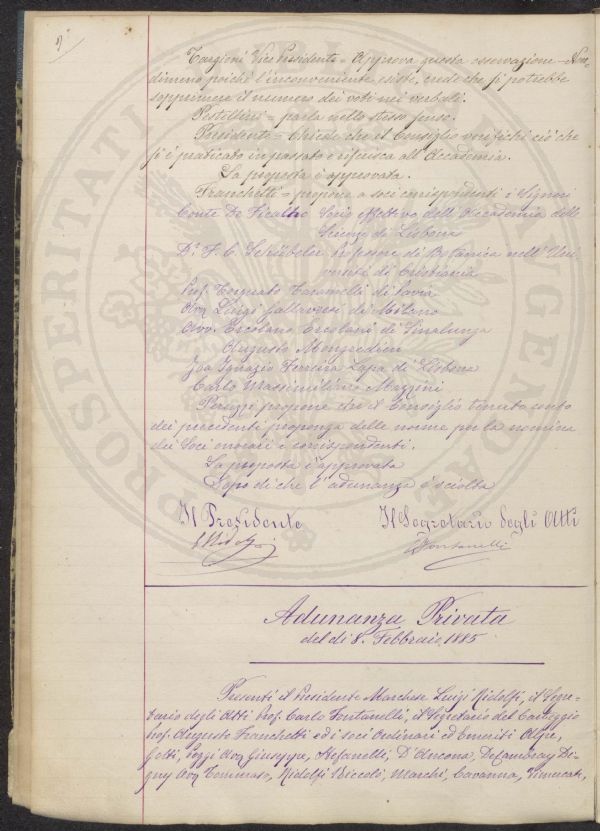 Targioni Vice Presidente = Approva questa osservazione = Non-
dimeno poiché l'inconveniente esiste, crede che si potrebbe
sopprimere il numero dei voti nei verbali.
Pestellini = parla nello stesso senso.
Presidente = Chiede che il Consiglio verifichi ciò che
si è praticato in passato e riferisca all'Accademia.
La proposta è approvata.
Franchetti = propone a soci corrispondenti i Signori
Conte De Ficalho Socio effettivo dell'Accademia delle
Scienze di Lisbona
Dr. F. C. Schübeler Professore di Botanica nell'Uni
versità di Cristiania
Prof. Torquato Taramelli di Pavia
Avv. Luigi Gallavresi di Milano
Avv. Ercolano Ercolani di Sinalunga
Augusto Mongredien
Joa Ignazio Ferreira Lapa di Lisbona
Carlo Massimiliano Mazzini
Peruzzi propone che il Consiglio tenuto conto
dei precedenti proponga delle norme per la nomina
dei Soci onorari e corrispondenti.
La proposta è approvata
Dopo di che l'adunanza è sciolta
Il Presidente Il Segretario degli Atti
L Ridolfi C Fontanelli
Adunanza Privata
del dì 8. Febbraio 1885
Presenti il Presidente Marchese Luigi Ridolfi, il Segre-
tario degli Atti Prof. Carlo Fontanelli, il Segretario del Carteggio
Prof. Augusto Franchetti ed i soci Ordinari ed Emeriti Alfre,
Gotti, Pozzi Avv Giuseppe, Stefanelli, D'Ancona, Decambray Di-
gny Avv Tommaso, Ridolfi Niccolò, Marchi, Cavanna, Vimercati,
PROSPERITATI AUGENDAE